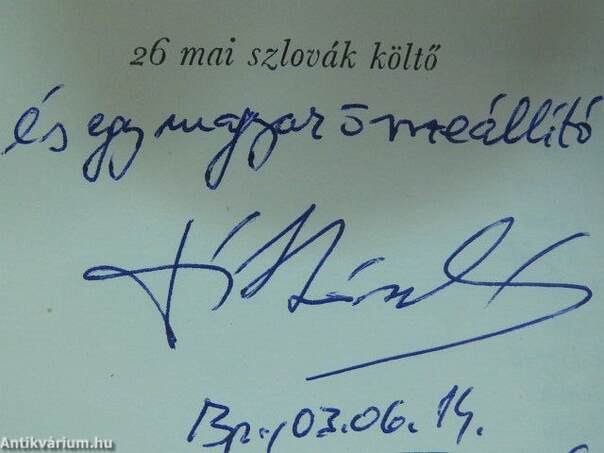 26 mai szlovák költő
és egy magyar összeállító
Tóth László
Bp., 03.06.14.
Antikvárium.hu